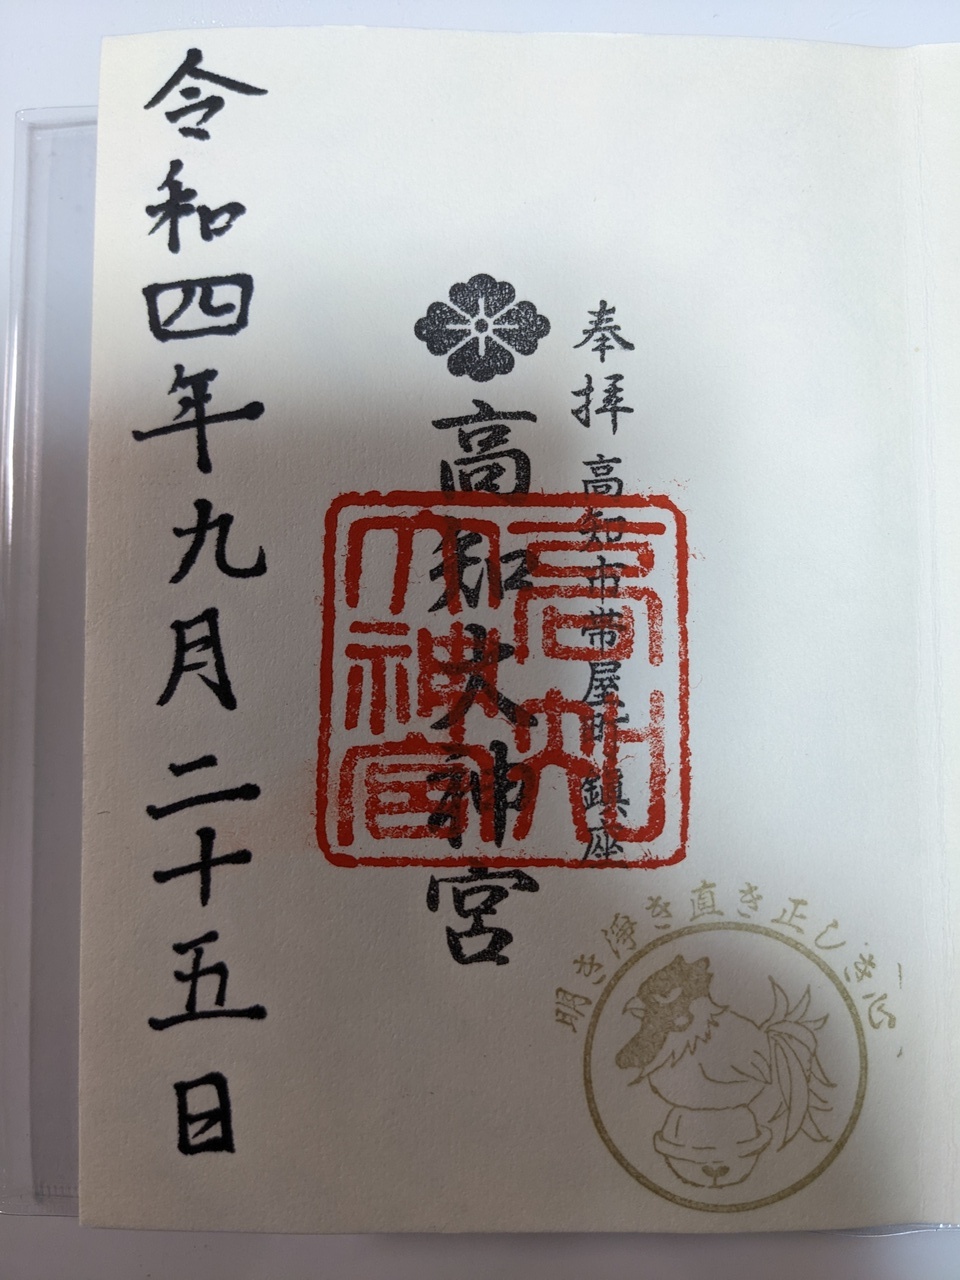 奉拝 高知市帯屋町鎮座
高知大神宮
高知大神宮
令和四年九月二十五日
明き浄き直き正しき心